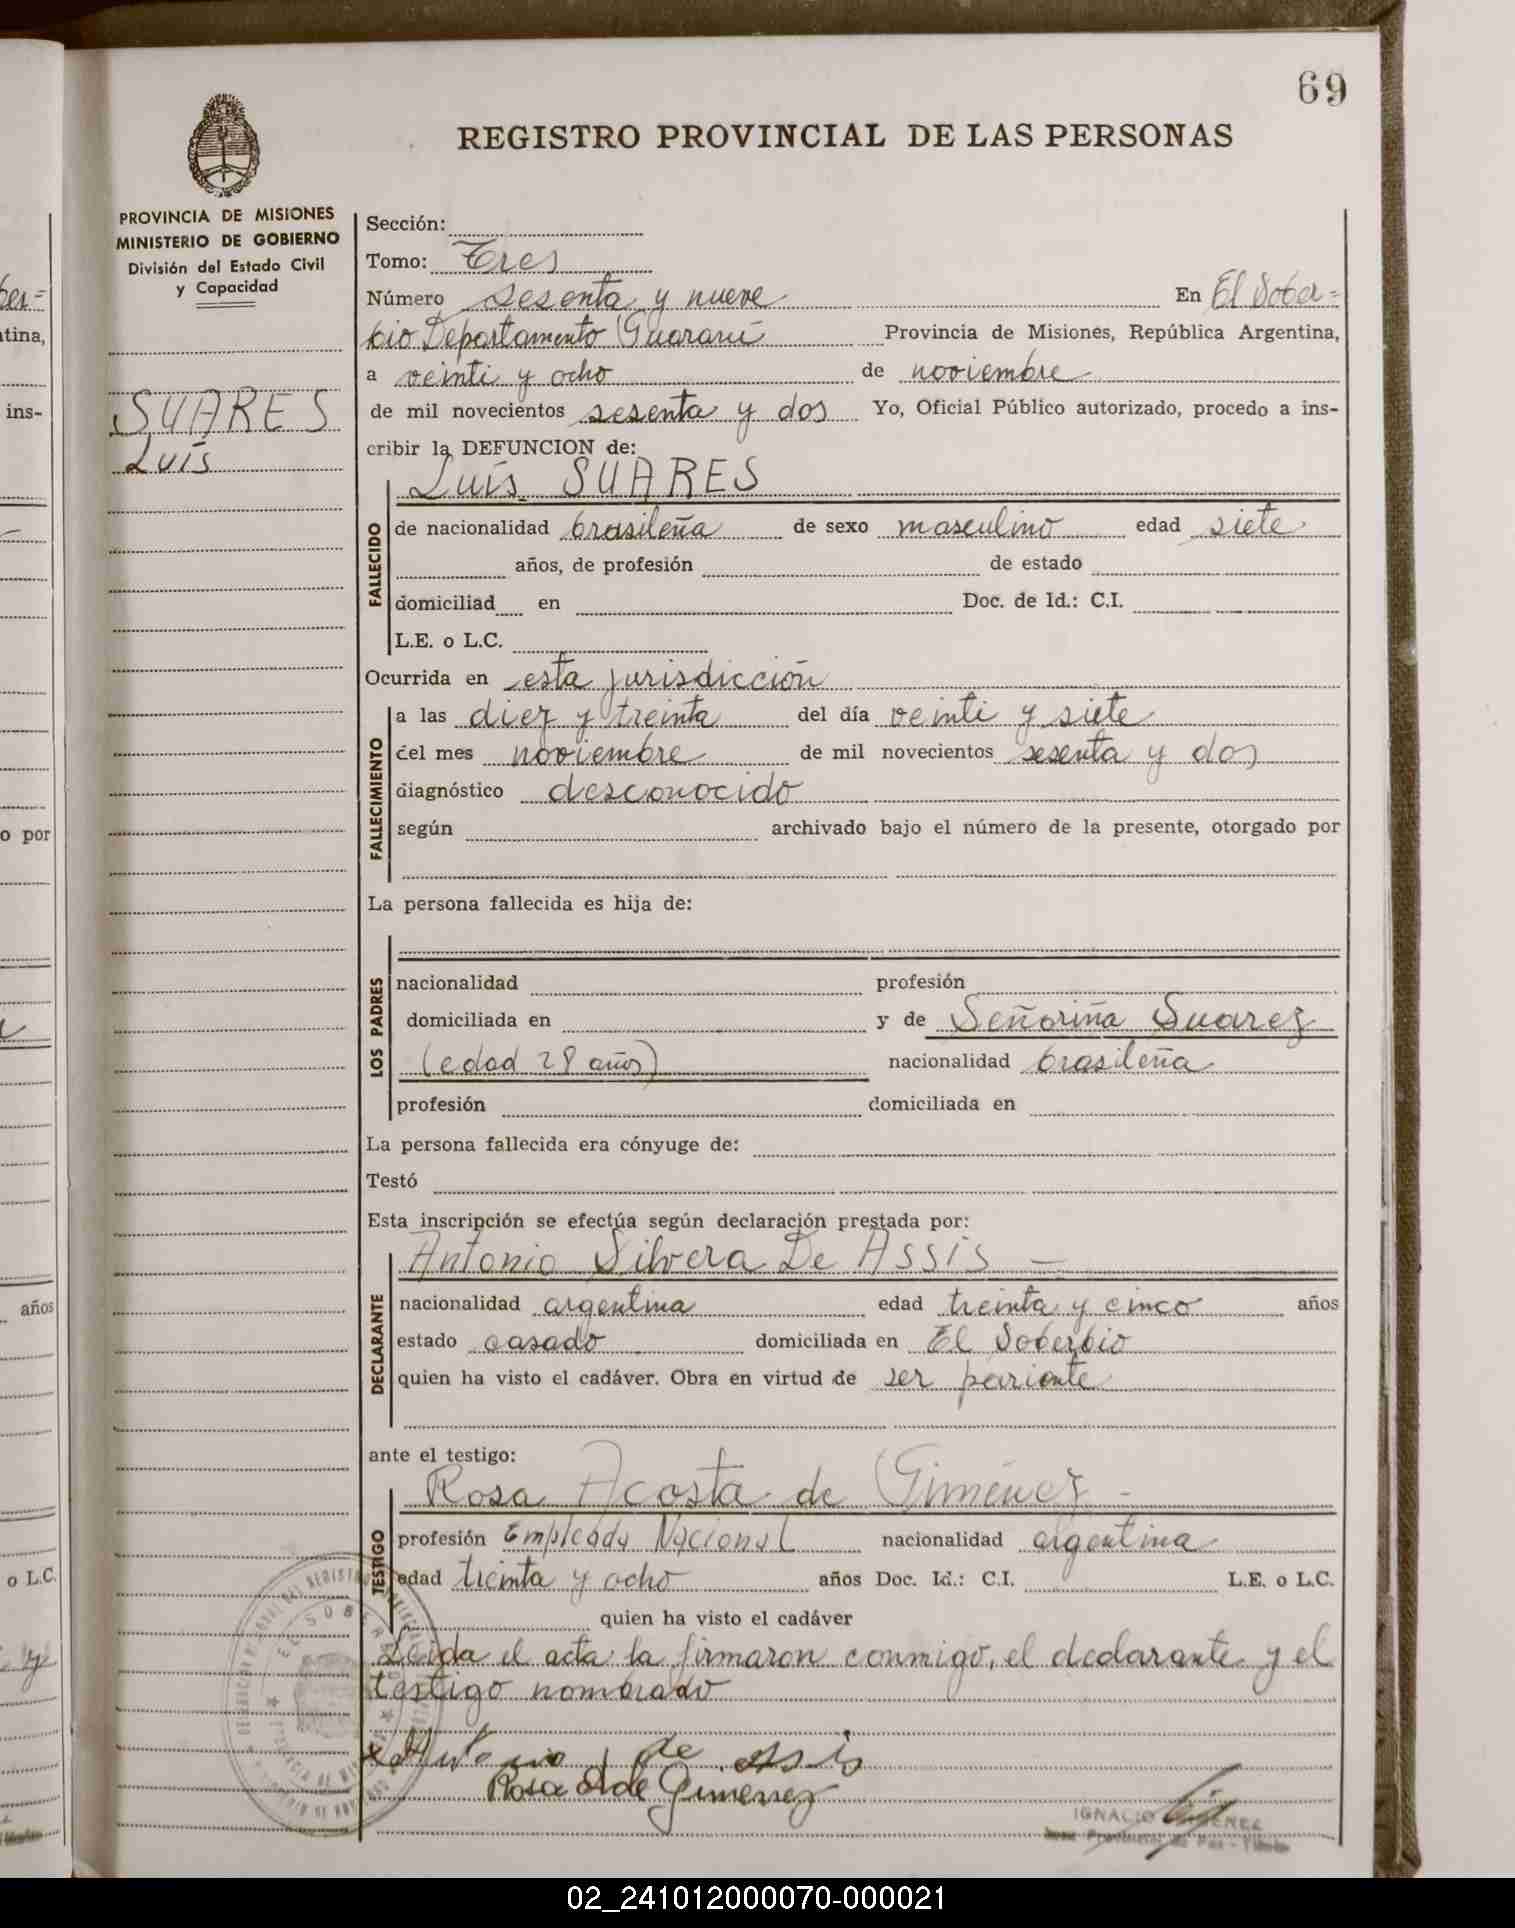 69
REGISTRO PROVINCIAL DE LAS PERSONAS
PROVINCIA DE MISIONES
MINISTERIO DE GOBIERNO
División del Estado Civil
y Capacidad
SUARES
Luís
Sección:
Tomo: Tres
Número sesenta y nueve En El Sober=
bio Departamento Guaraní Provincia de Misiones, República Argentina,
a veinti y ocho de noviembre
de mil novecientos sesenta y dos Yo, Oficial Público autorizado, procedo a ins-
cribir la DEFUNCION de:
Luís SUARES
FALLECIDO
de nacionalidad brasileña de sexo masculino edad siete
años, de profesión de estado
domiciliad en Doc. de Id.: C.I.
L.E. o L.C.
Ocurrida en esta jurisdicción
FALLECIMIENTO
a las diez y treinta del día veinti y siete
del mes noviembre de mil novecientos sesenta y dos
diagnóstico desconocido
según archivado bajo el número de la presente, otorgado por
La persona fallecida es hija de:
LOS PADRES
nacionalidad profesión
domiciliada en y de Señoriña Suarez
(edad 28 años) nacionalidad brasileña
profesión domiciliada en
La persona fallecida era cónyuge de:
Testó
Esta inscripción se efectúa según declaración prestada por:
Antonio Silvera De Assis
DECLARANTE
nacionalidad argentina edad treinta y cinco años
estado casado domiciliada en El Soberbio
quien ha visto el cadáver. Obra en virtud de ser pariente
ante el testigo:
Rosa Acosta de Giménez
TESTIGO
profesión Empleada Nacional nacionalidad argentina
edad treinta y ocho años Doc. Id.: C.I. L.E. o L.C.
quien ha visto el cadáver
Leida el acta la firmaron conmigo, el declarante y el
testigo nombrado
Antonio de Assis
Rosa A de Gimenez
IGNACIO GIMENEZ
tina,
ins-
o por
años
o L.C.
y
02_241012000070-000021